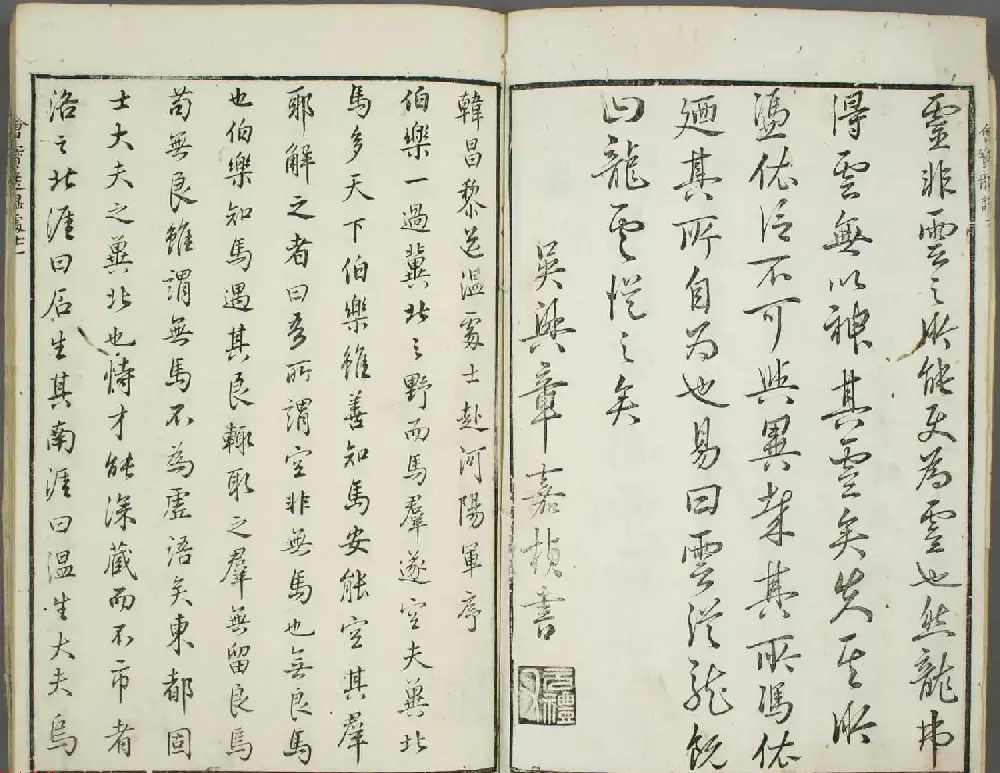 靈非雲之所能使為靈也然龍弗
得雲無以神其靈矣失其所
憑依信不可與異哉其所馮依
廼其所自為也易曰雲從龍既
曰龍雲從之矣
吳興章嘉楨書
韓昌黎送溫處士赴河陽軍序
伯樂一過冀北之野而馬羣遂空夫冀北
馬多天下伯樂雖善知馬安能空其羣
耶解之者曰吾所謂空非無馬也無良馬
也伯樂知馬遇其良輙取之羣無留良焉
苟無良雖謂無馬不為虛語矣東都固
士大夫之冀北也恃才能深藏而不市者
洛之北涯曰石生其南涯曰溫生大夫烏